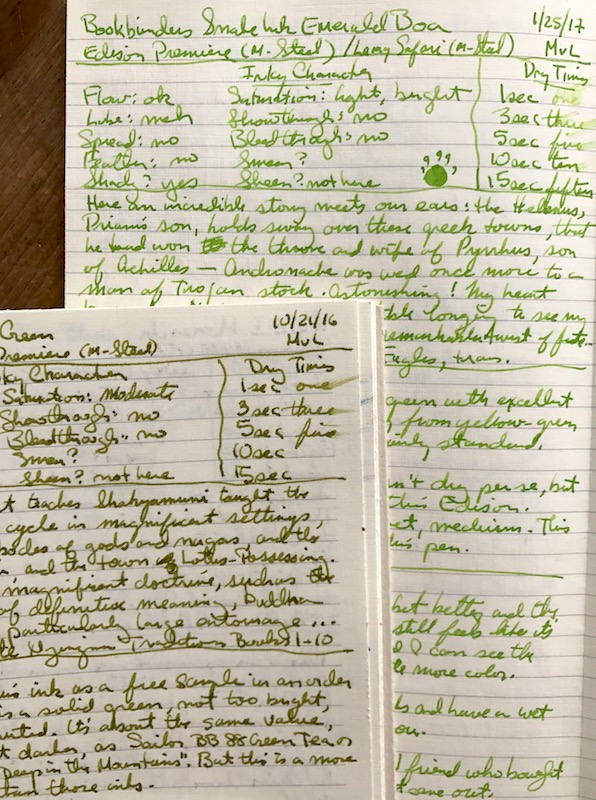 Bookbinders Snake Ink Emerald Boa 1/25/17
Edison Premiere (M-Steel) / Lamy Safari (M-Steel) MvL
Inky Character Dry Times
Flow: ok Saturation: light, bright 1sec one
Lube: meh Showthrough: no 3sec three
Spread: no Bleedthrough: no 5sec five
Feather: no Smear? 10sec ten
Shady? yes Sheen? not here 15sec fifteen
Here an incredible story meets our ears: the Helenus,
Priam's son, holds sway over these greek towns, that
he had won the throne and wife of Pyrrhus, son
of Achilles — Andromache was wed once more to a
man of Trojan stock. Astonishing! My heart
longing to see my
remarkable twist of fate.
Fagles, trans.
green with excellent
from yellow-green
standard.
n't dry per se, but
this Edison.
wet, medium. This
this pen.
but better and the
still feels like it's
I can see the
more color.
and have a wet
friend who bought
came out.
Green 10/21/16
Premiere (M-Steel) MvL
ky Character Dry Times
Saturation: Moderate 1sec one
Showthrough: no 3sec three
Bleedthrough: no 5sec five
Smear? 10sec
Sheen? not here 15sec
t teaches Shakyamuni taught the
cycle in magnificent settings,
bodes of gods and nagas and the
and the town Lotus-Possessing.
magnificent doctrine, such as the
of definitive meaning, Buddha
particularly large entourage...
Traditions Books 1-10
is ink as a free sample in an order
is a solid green, not too bright,
It's about the same value,
t darker, as Sailor BB 88 Green Tea or
"Deep in the Mountains". But this is a more
than those inks.